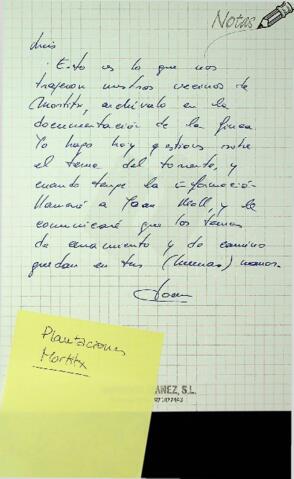 Notas
Luis
Esto es lo que nos
trajeron nuestros vecinos de
Mortitx, archívalo en la
documentación de la finca.
Yo hago hoy gestiones sobre
el tema del torrente, y
cuando tenga la información
llamaré a Joan Moll, y le
comunicaré que los temas
de cerramiento y de camino
quedan en tus (buenas) manos.
Joan
Plantaciones
Mortitx
ÁÑEZ, S.L.